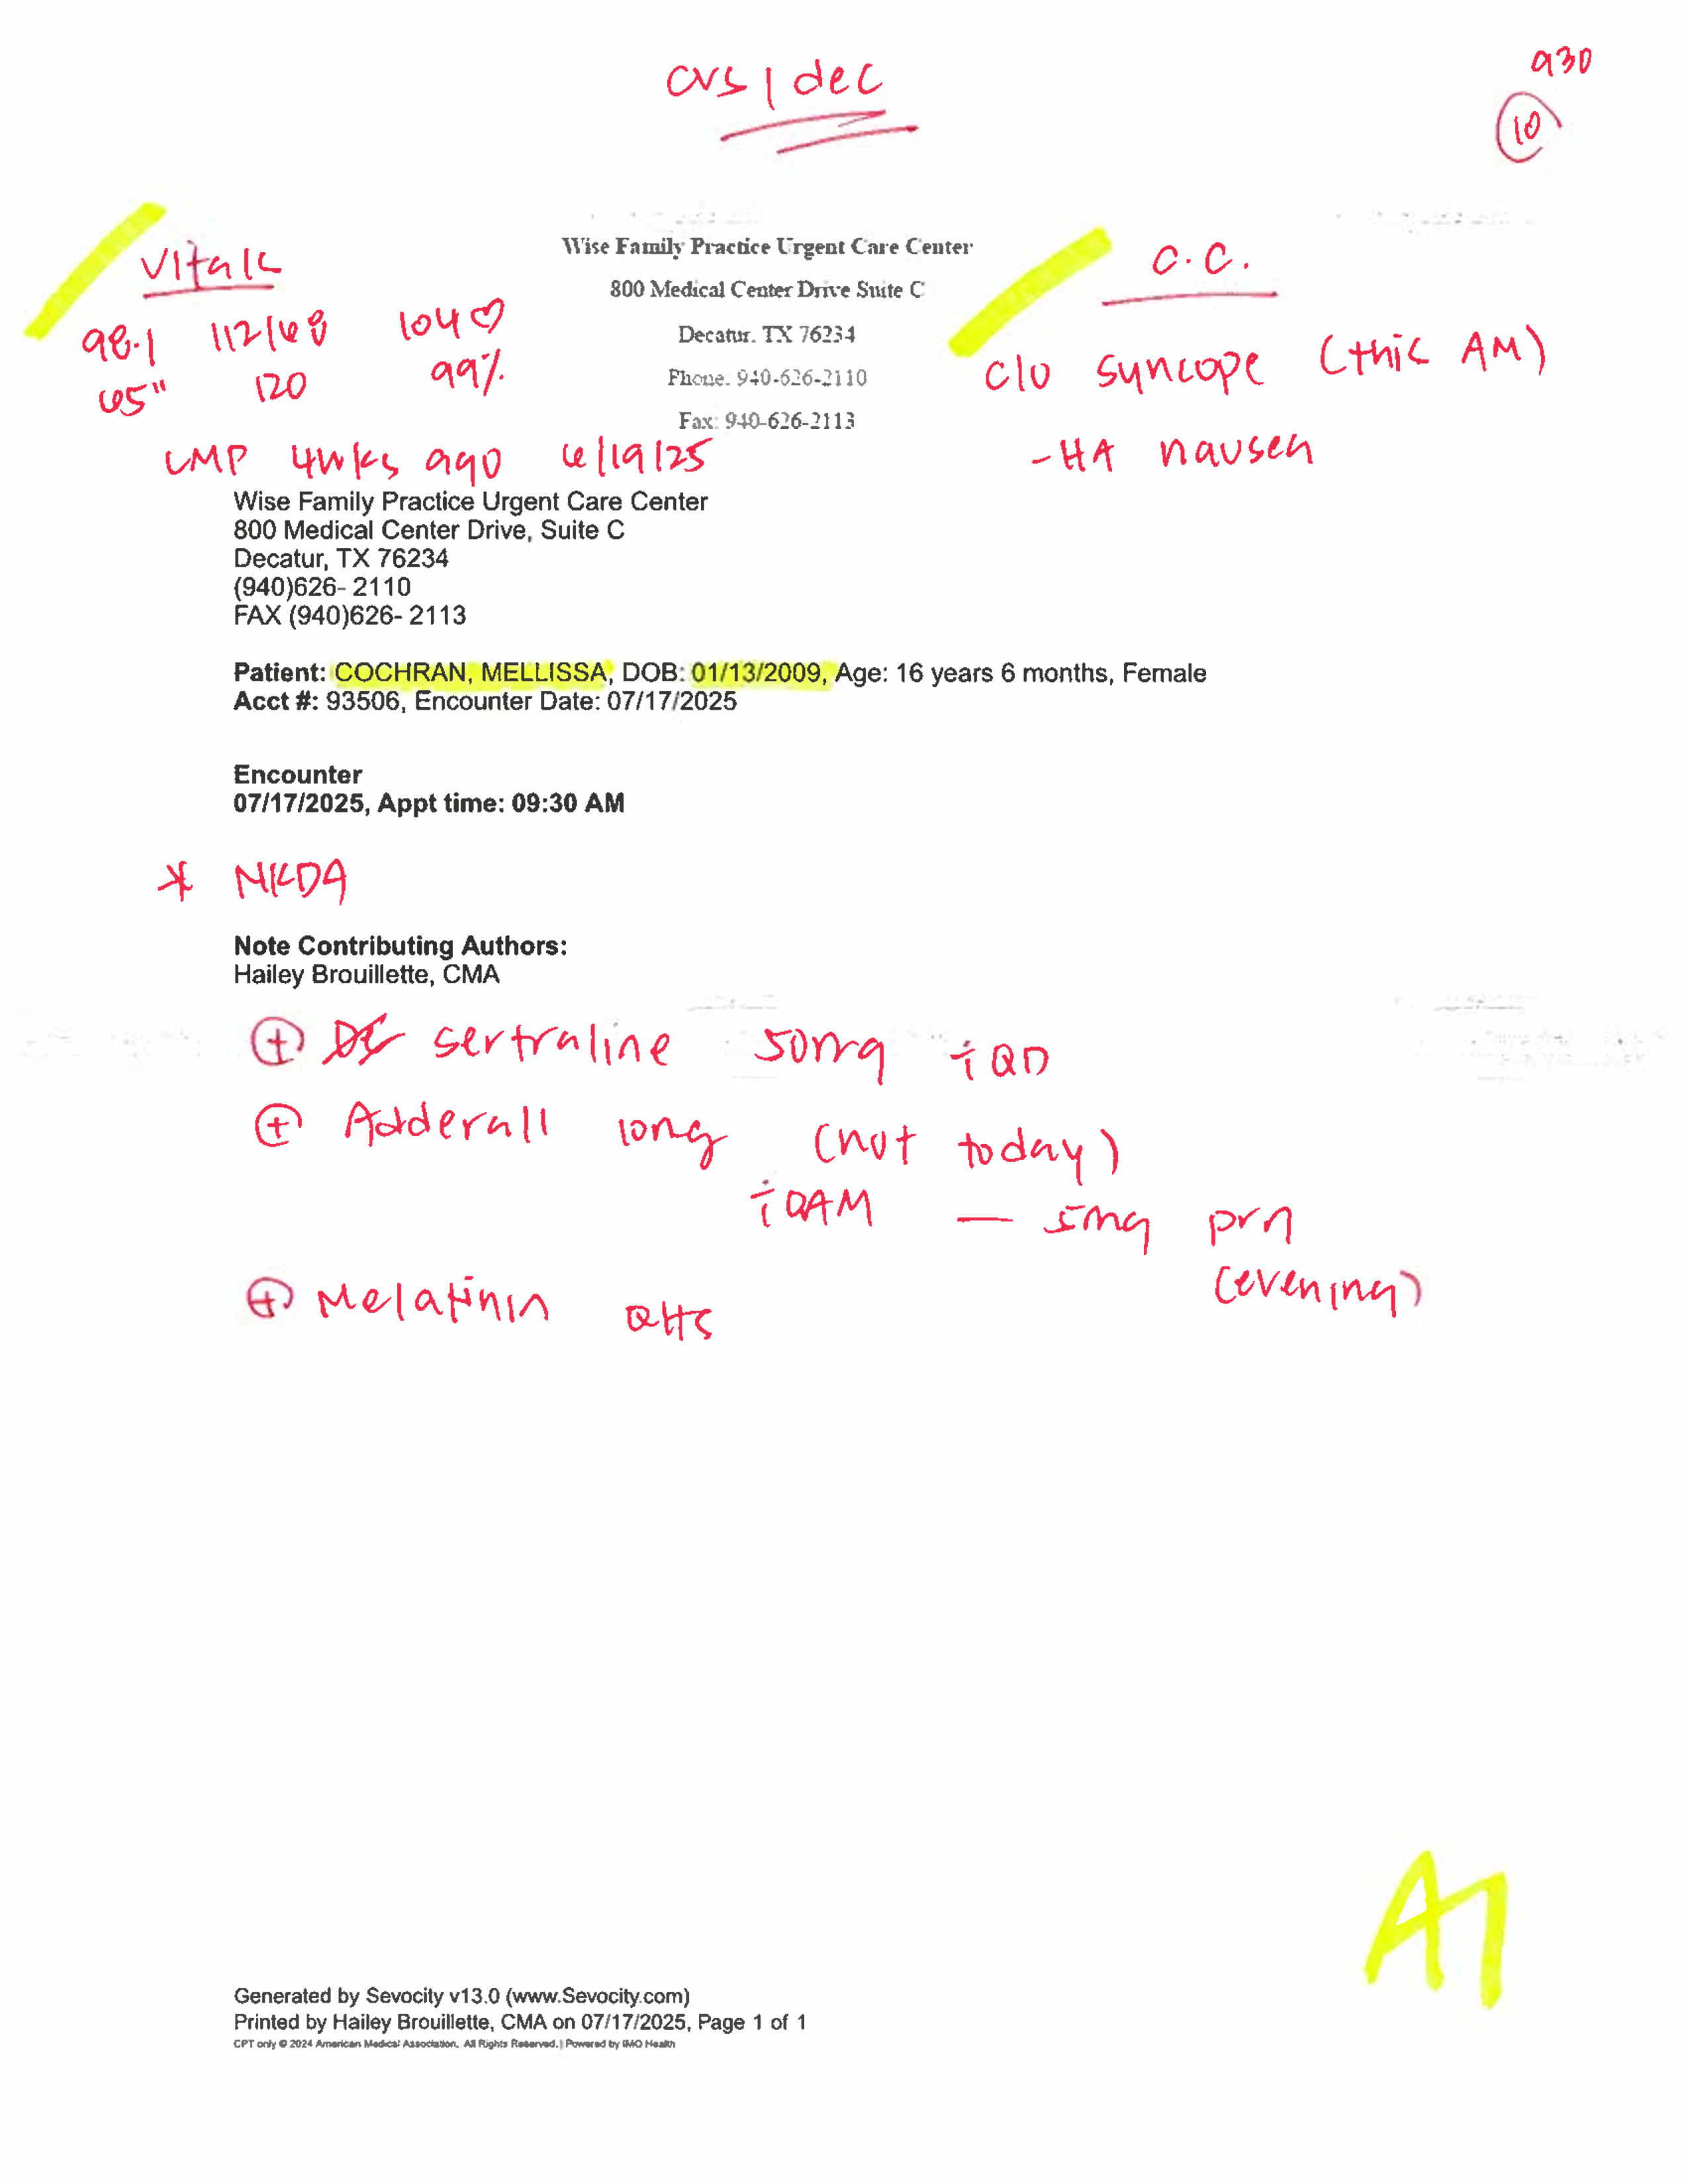 CVS | dec
930
10
Vitals
98.1 112/68 104♡
65" 120 99%
LMP 4wks ago 6/19/25
Wise Family Practice Urgent Care Center
800 Medical Center Drive Suite C
Decatur. TX 76234
Phone. 940-626-2110
Fax: 940-626-2113
C.C.
c/o syncope (this AM)
-HA nausea
Wise Family Practice Urgent Care Center
800 Medical Center Drive, Suite C
Decatur, TX 76234
(940)626- 2110
FAX (940)626- 2113
Patient: COCHRAN, MELLISSA, DOB: 01/13/2009, Age: 16 years 6 months, Female
Acct #: 93506, Encounter Date: 07/17/2025
Encounter
07/17/2025, Appt time: 09:30 AM
* NKDA
Note Contributing Authors:
Hailey Brouillette, CMA
⊕ sertraline 50mg i QD
⊕ Adderall 10mg (not today)
i QAM — 5mg prn
(evening)
⊕ Melatinin QHS
A1
Generated by Sevocity v13.0 (www.Sevocity.com)
Printed by Hailey Brouillette, CMA on 07/17/2025, Page 1 of 1
CPT only © 2024 American Medical Association. All Rights Reserved. | Powered by IMO Health